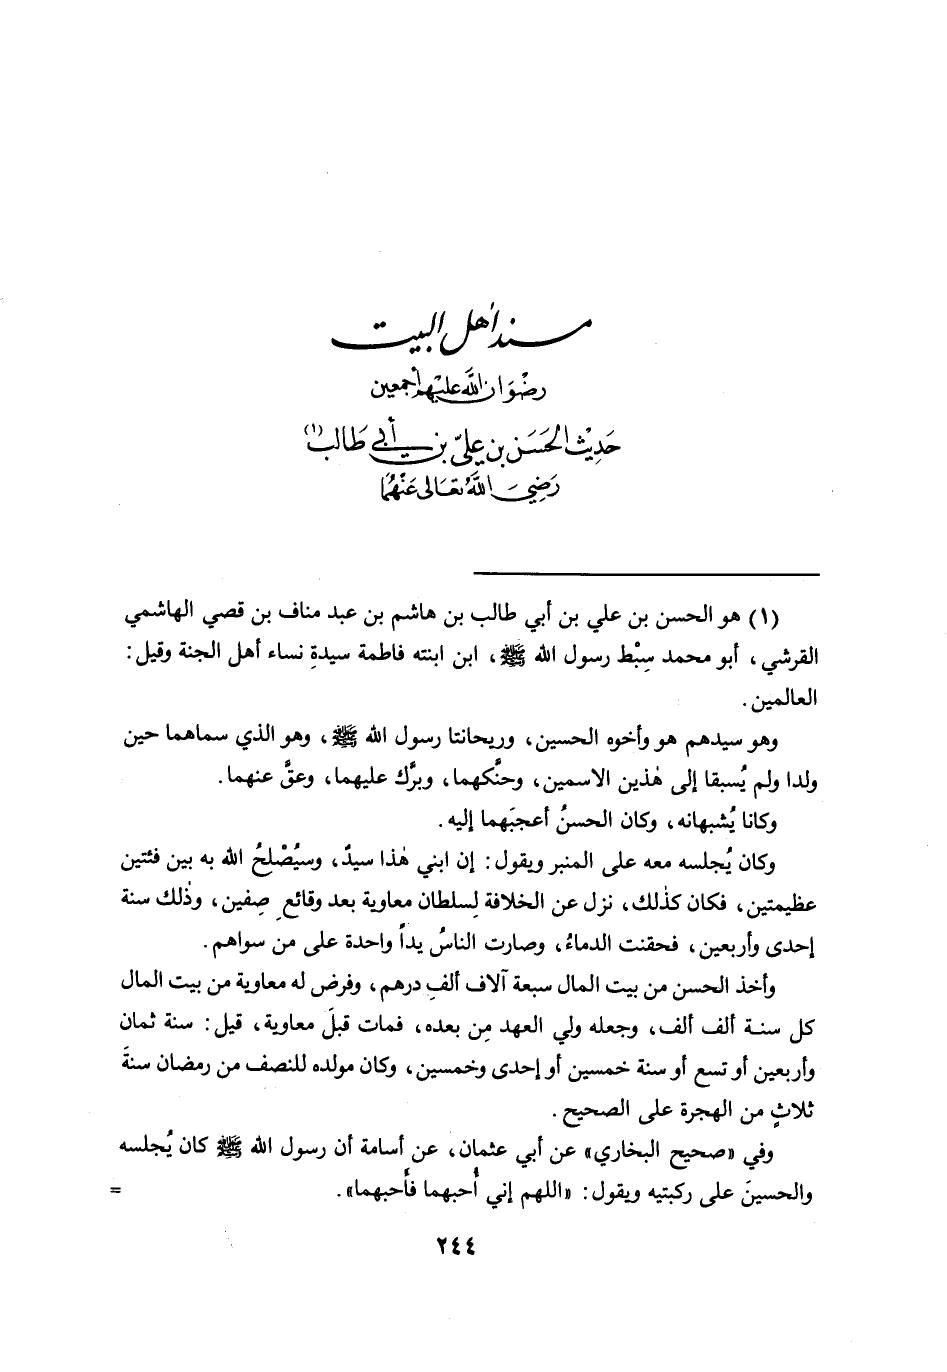 مسند أهل البيت
رضوان الله عليهم أجمعين
حديث الحسن بن علي بن أبي طالب (١)
رضي الله تعالى عنهما
(١) هو الحسن بن علي بن أبي طالب بن هاشم بن عبد مناف بن قصي الهاشمي
القرشي، أبو محمد سِبْط رسول الله ﷺ، ابن ابنته فاطمة سيدةِ نساء أهل الجنة وقيل:
العالمين.
وهو سيدهم هو وأخوه الحسين، وريحانتا رسول الله ﷺ، وهو الذي سماهما حين
ولدا ولم يُسبقا إلى هٰذين الاسمين، وحنَّكهما، وبرَّك عليهما، وعقَّ عنهما.
وكانا يُشبهانه، وكان الحسنُ أعجبَهما إليه.
وكان يُجلسه معه على المنبر ويقول: إن ابني هٰذا سيدٌ، وسيُصْلحُ الله به بين فئتين
عظيمتين، فكان كذٰلك، نزل عن الخلافة لِسلطان معاوية بعد وقائعِ صِفين، وذٰلك سنة
إحدى وأربعين، فحقنت الدماءُ، وصارت الناسُ يداً واحدة على من سواهم.
وأخذ الحسن من بيت المال سبعة آلاف ألفِ درهم، وفرض له معاوية من بيت المال
كل سنة ألف ألف، وجعله ولي العهد مِن بعده، فمات قبلَ معاوية، قيل: سنة ثمان
وأربعين أو تسع أو سنة خمسين أو إحدى وخمسين، وكان مولده للنصف من رمضان سنةَ
ثلاثٍ من الهجرة على الصحيح.
وفي «صحيح البخاري» عن أبي عثمان، عن أسامة أن رسول الله ﷺ كان يُجلسه
والحسينَ على ركبتيه ويقول: «اللهم إني أُحبهما فأَحبهما». =
٢٤٤